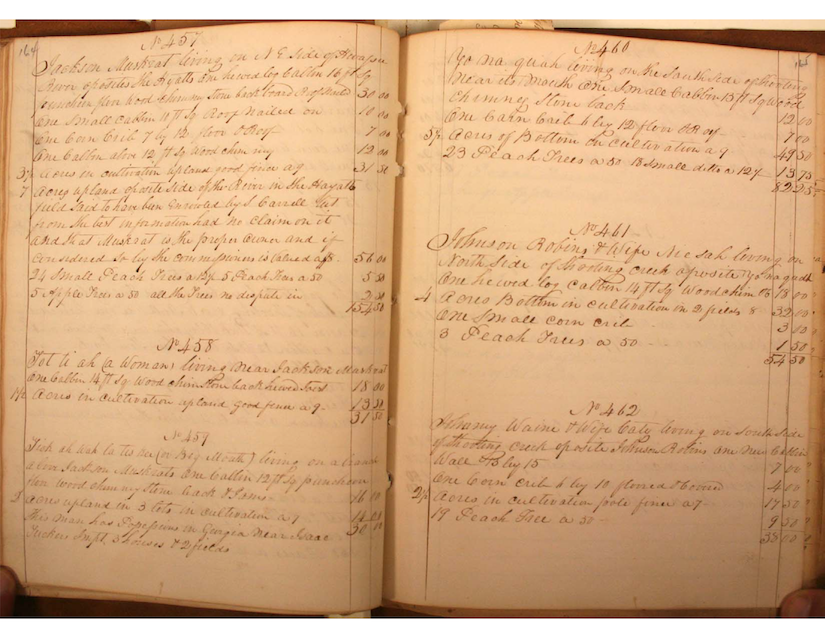 164
No 457
Jackson Muskrat living on N E side of
River oposite the Hyatts One hewed log Cabbin 16 ft Sq
puncheon floor wood chimney stone back board Roof Nailed 30 00
One Small Cabbin 11 ft Sq Roof Nailed on 10 00
One Corn Crib 7 by 12 floor & Roof 7 00
One Cabbin above 12 ft Sq Wood chimney 12 00
3½ Acres in cultivation upland good fence a 9 31 50
7 Acres upland oposite side of the River in the Hayatt
field said to have been Enrolled by S. Carrell but
from the best information had no claim on it
and that Muskrat is the proper owner and if
considered so by the commissioners is valued a $8 56 00
24 Small Peach Trees a 12½ 5 Peach Trees a 50 5 50
5 Apple Trees a 50 all the Trees no dispute in 2 50
154 50
No 458
Tot ti ah (a Woman) living near Jackson Muskrat
One Cabbin 14 ft Sq Wood chim Stone back hewed 18 00
1½ Acres in cultivation upland good fence a 9 13 50
31 50
No 459
(or Big Mouth) living on a branch
above Jackson Muskrats One Cabbin 12 ft Sq puncheon
floor wood chimney stone back & Jams 16 00
2 Acres upland in 3 lots in cultivation a 7 14 00
This man has in Georgia near Isaac 30 00
Tuckers 3 houses & 2 fields
165
No 460
Yo na quah living on the South side of Shooting
near its mouth One Small Cabbin 13 ft Sq Wood
chimney Stone back 12 00
One Corn Crib 6 by 12 floor & Roof 7 00
5½ Acres of Bottom in cultivation a 9 49 50
23 Peach Trees a 50 18 small ditto a 12½ 13 75
82 25
No 461
Johnson Robins & Wife Ne sah living on
North Side of Shooting creek oposite Yo na quah
One hewed log cabbin 14 ft Sq Wood chim 18 00
4 Acres Bottom in cultivation in 2 fields 8 32 00
One Small corn crib 3 00
3 Peach Trees a 50 1 50
54 50
No 462
Johnny Waine & Wife Caty living on South side
of Shooting Creek oposite Johnson Robins One New Cabbin
Wall 13 by 15 7 00
One Corn Crib 6 by 10 floored & covered 4 00
2½ Acres in cultivation pole fence a 7 17 50
19 Peach Tree a 50 9 50
38 00